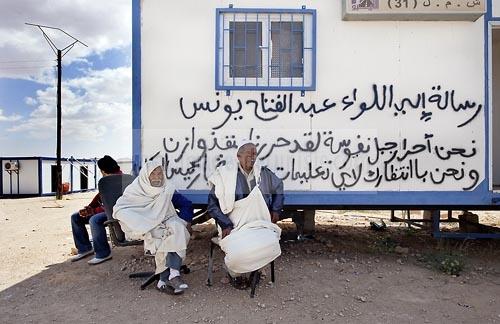 (31) ش . م . ل
رسالة إلى اللواء عبد الفتاح يونس
نحن أحرار جبل نفوسة لقد حررنا
ونحن باانتظارك لاي تعليمات